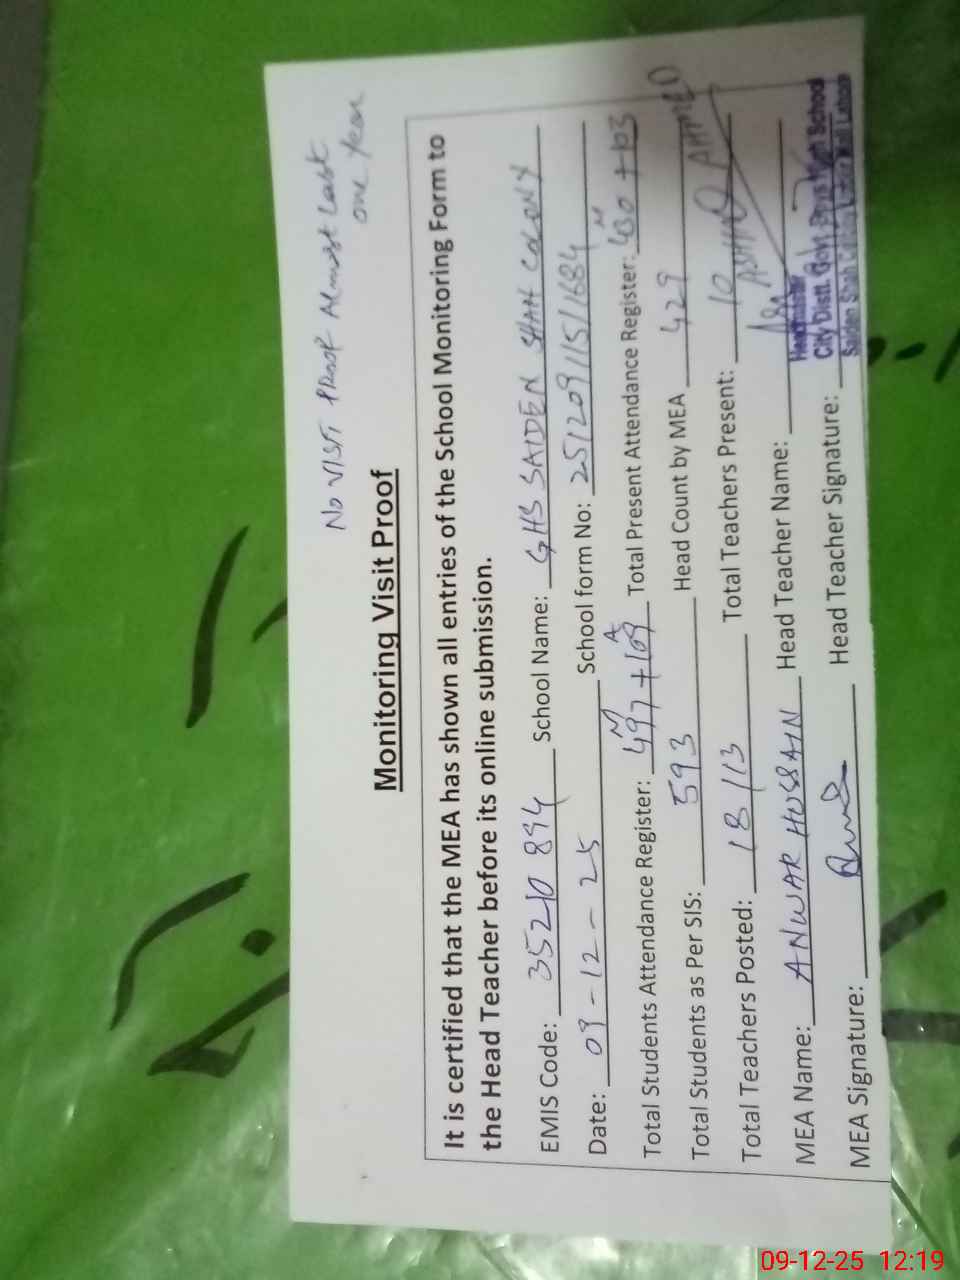 No VISTI PROOF Almost Last
one Year
Monitoring Visit Proof
It is certified that the MEA has shown all entries of the School Monitoring Form to
the Head Teacher before its online submission.
EMIS Code: 35210894 School Name: GHS SAIDEN SHAH COLONY
Date: 09-12-25 School form No: 251209115/1684
Total Students Attendance Register: 497 + 109 Total Present Attendance Register: 430 + 63
Total Students as Per SIS: 593 Head Count by MEA 429
Total Teachers Posted: 18/13 Total Teachers Present: 10
MEA Name: ANWAR HUSSAIN Head Teacher Name: ASHFAQ AHMED
MEA Signature: Head Teacher Signature:
Headmaster
City Distt. Govt. Boys High School
Saiden Shah Colony Lahore
09-12-25 12:19